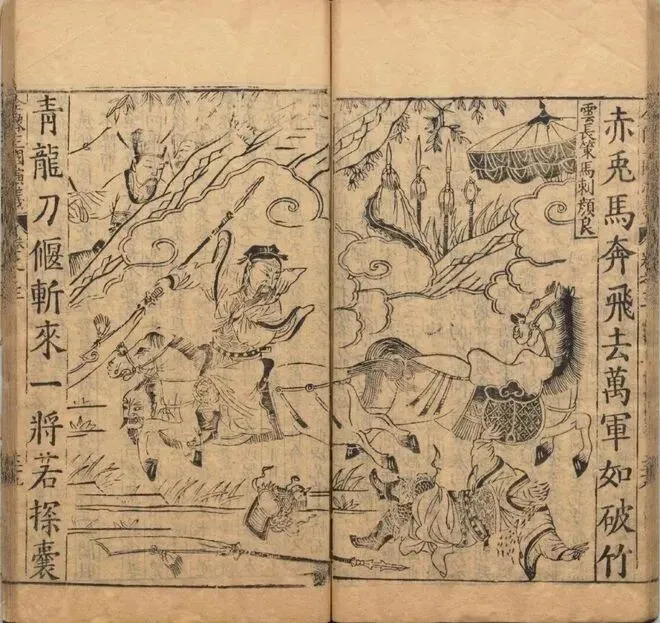 赤兔馬奔飛去萬軍如破竹
雲長策馬刺顏良
青龍刀偃斬來一將若探囊